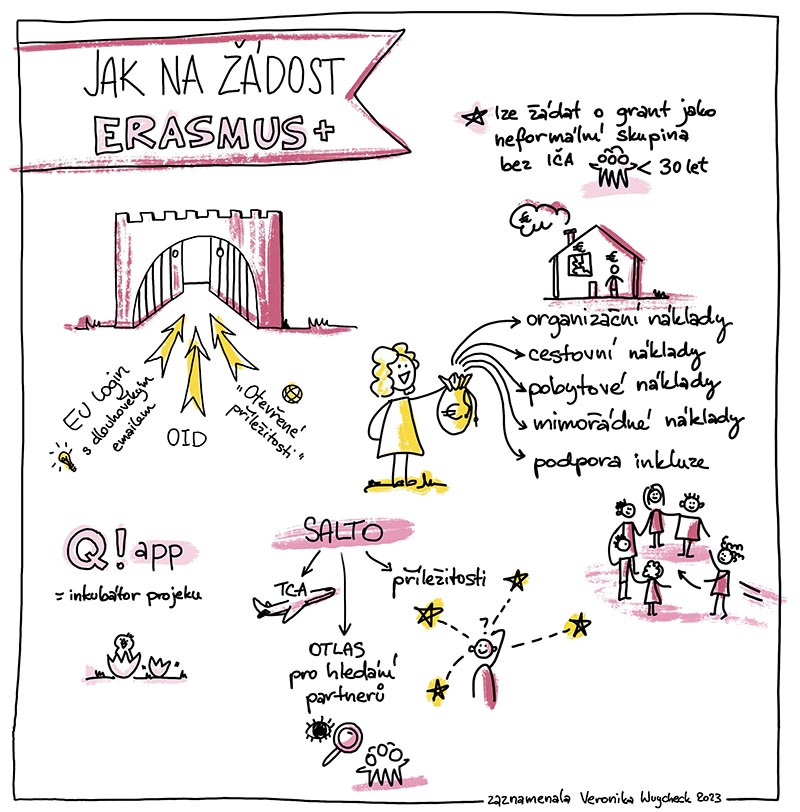 JAK NA ŽÁDOST
ERASMUS+
lze žádat o grant jako
neformální skupina
bez IČA
< 30 let
€
€
€
organizační náklady
cestovní náklady
pobytové náklady
mimořádné náklady
podpora inkluze
€
EU Login
s dlouhověkým
emailem
OID
"Otevřené
příležitosti"
Q! app
= inkubátor projeku
SALTO
TCA
příležitosti
OTLAS
pro hledání
partnerů
?
zaznamenala Veronika Wuycheck 2023